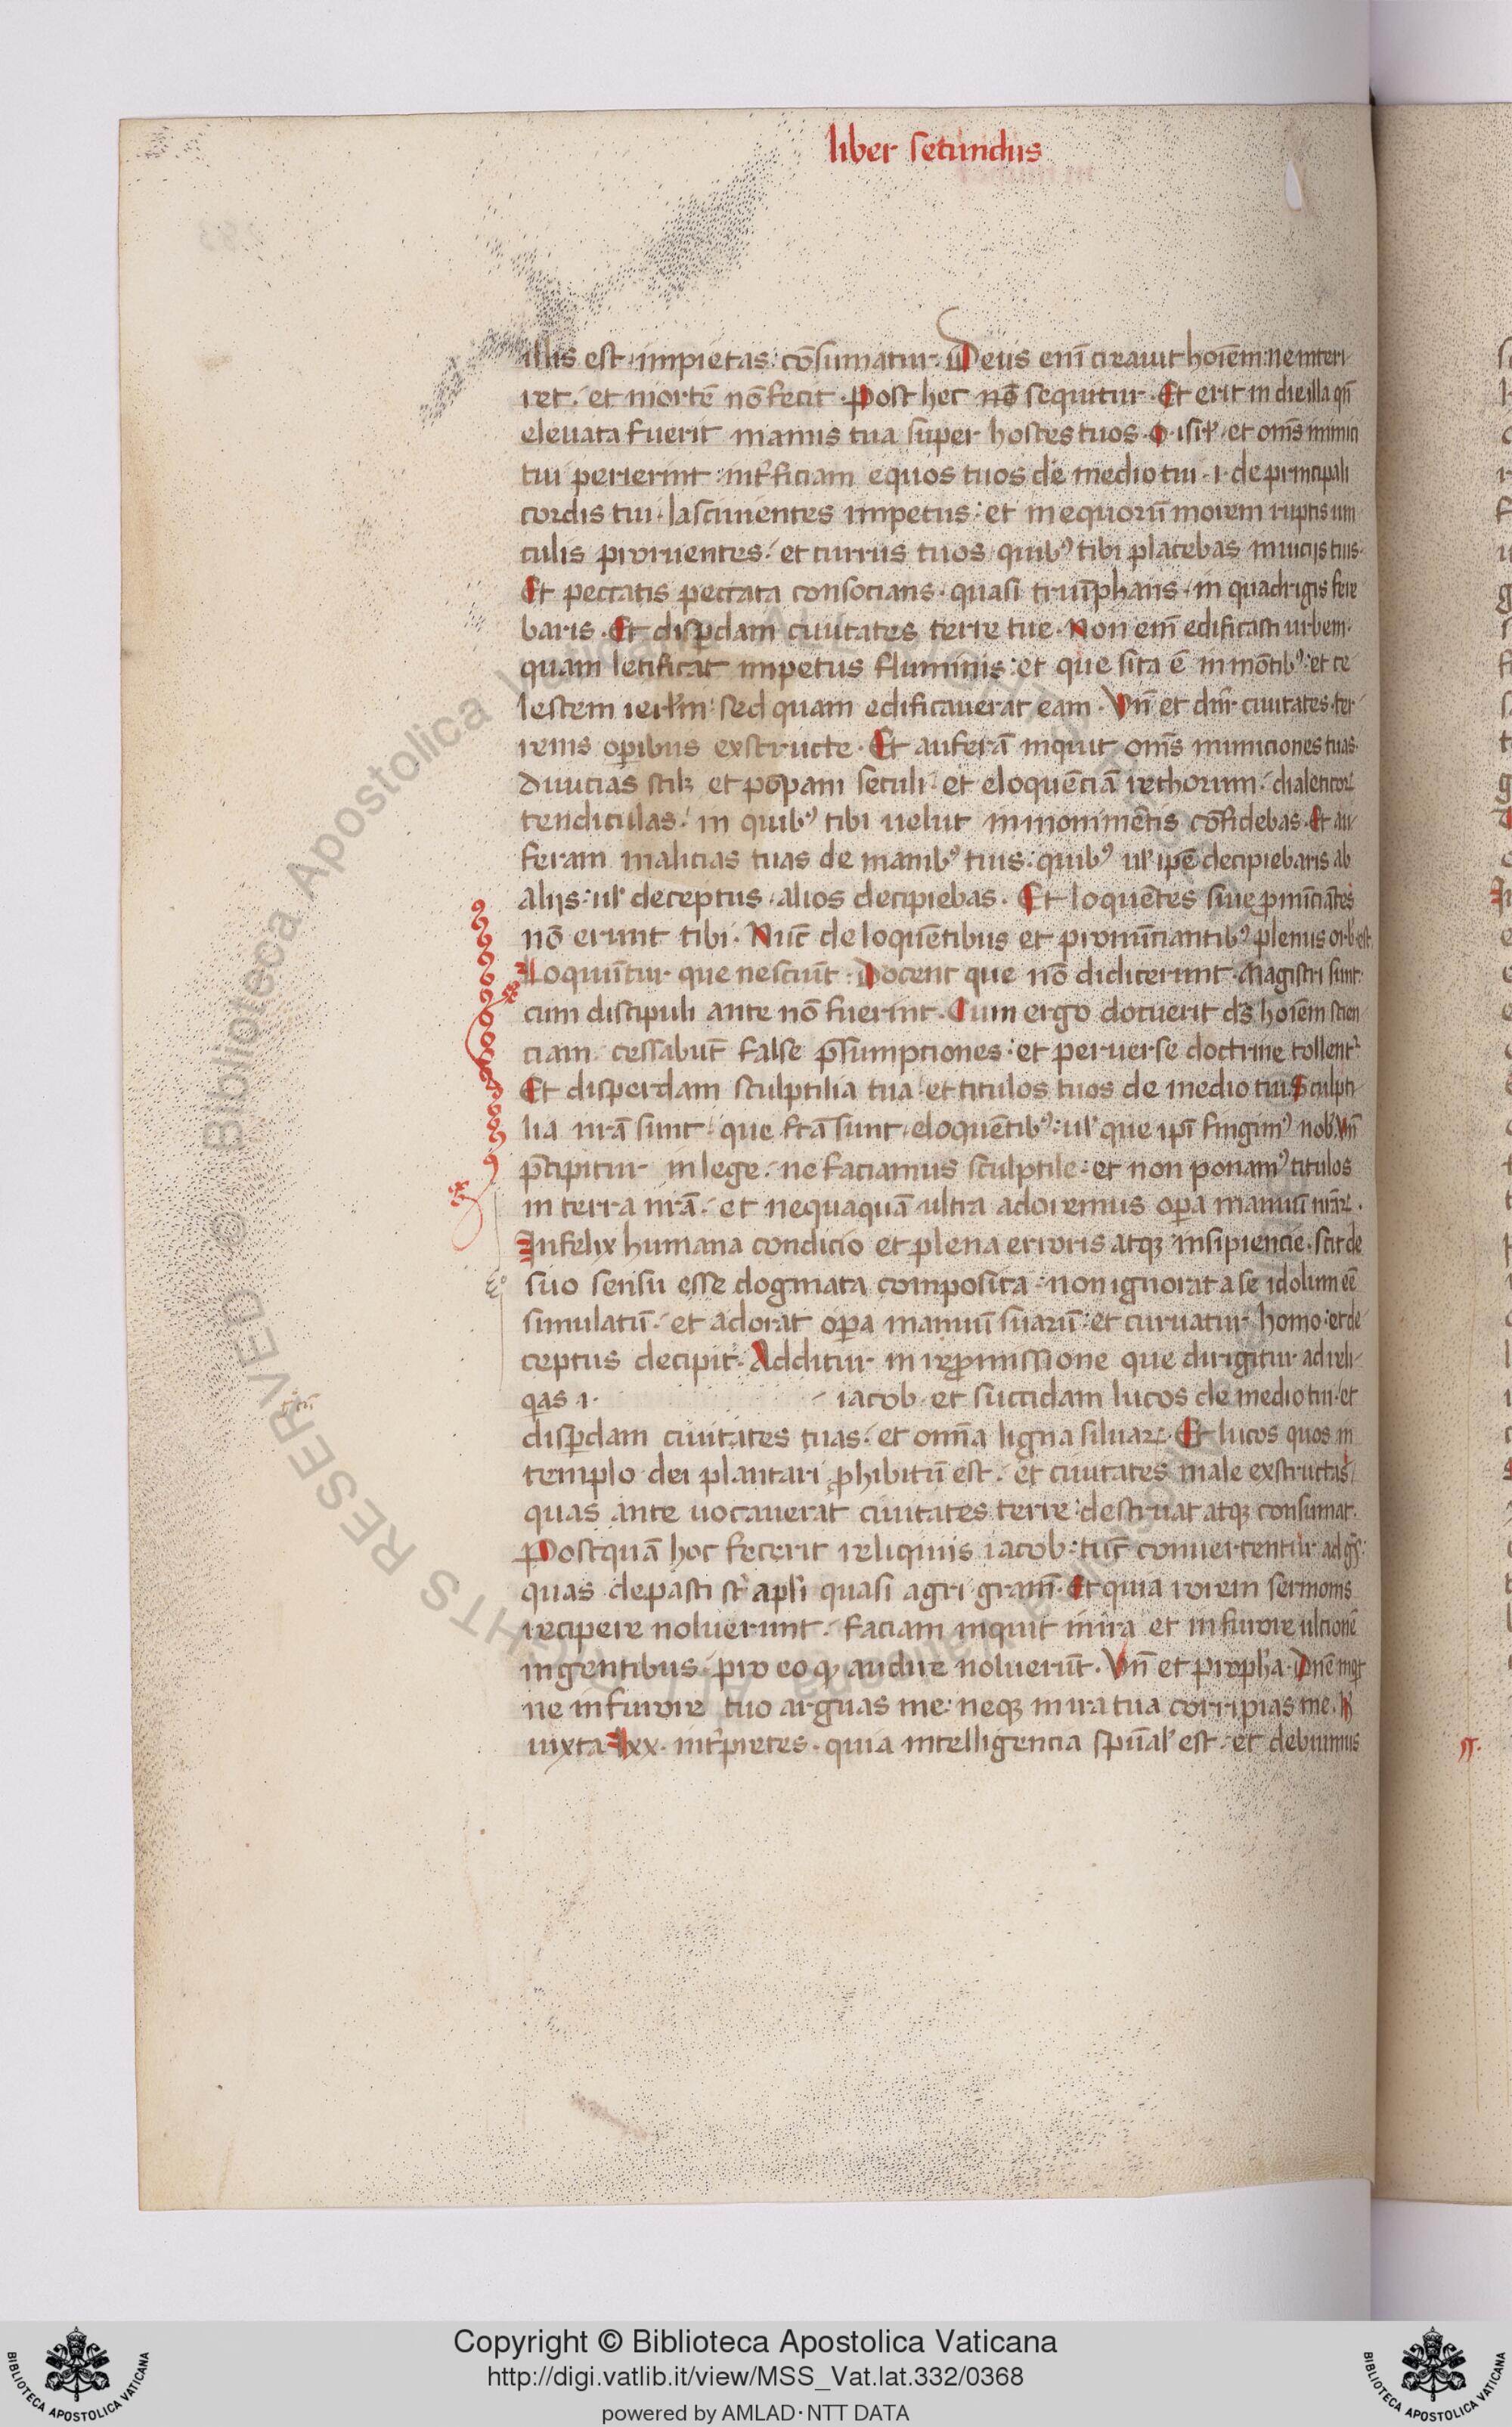 liber secundus
illis est impietas: cōsumatur. Deus enī creauit hoīem: ne interi
ret. et mortē nō fecit. Post hec nō sequitur. Et erit in die illa qn̄
eleuata fuerit manus tua super hostes tuos .o. isrł. et om̄s inimici
tui perierint: int̄ficiam equos tuos de medio tui .i. de principali
cordis tui. lasciuientes impetus: et in equorū morem ruptis uin
culis proruentes. et currus tuos quibꝰ tibi placebas in uicijs tuis.
Et peccatis peccata consocians. quasi triūphans in quadrigis fere
baris. Et disꝑdam ciuitates terre tue. Non em̄ edificasti urbem.
quam letificat impetus fluminis: et que sita ē in mōtibꝰ: et ce
lestem ierłm: sed quam edificauerat cam. Vn̄ et dn̄r ciuitates ter
renis oꝑibus exstructe. Et auferā inquit om̄s municiones tuas.
Diuicias scilꝫ et pōpam seculi. et eloquēciā rethorum. dialeticoꝝ
tendiculas. in quibꝰ tibi uelut in monimētis cōfidebas. Et au
feram malicias tuas de manibꝰ tuis: quibꝰ uł ipē decipiebaris ab
alijs: uł deceptus alios decipiebas. Et loquētes siue ꝓnūciātes
nō erunt tibi. Nūc de loquētibus et pronūciantibꝰ plenus orb' est.
Loquūtur que nesciūt. Docent que nō didicerunt. Magistri sunt:
cum discipuli ante nō fuerint. Cum ergo docuerit ds̄ hoīem scien
ciam. cessabūt false p̄sumptiones: et peruerse doctrine tollent᷑
Et disperdam sculptilia tua et titulos tuos de medio tui. Sculpti
lia nr̄a sunt. que fr̄a sunt eloquētibꝰ: uł que ipī fingimꝰ nob'. Vn̄
p̄cipitur in lege. ne faciamus sculptile: et non ponamꝰ titulos
in terra nr̄a. et nequaquā ultra adoremus oꝑa manuū nr̄aꝝ.
Infelix humana condicio et plena erroris atqꝫ insipiencie. scit de
suo sensu esse dogmata composita. non ignorat a se idolum eē
simulatū. et adorat oꝑa manuū suarū: et curuatur homo: et de
ceptus decipit. Additur in reꝓmissione que dirigitur ad reli
qas .i. iacob. et succidam lucos de medio tui. et
disꝑdam ciuitates tuas. et omīa ligna siluaꝝ. Et lucos quos in
templo dei plantari ꝓhibitū est. et ciuitates male exstructas
quas ante uocauerat ciuitates terre: destruat atqꝫ consumat.
Postquā hoc fecerit reliquiis iacob: tūc conuertentur ad gn̄s:
quas depasti st̄ apłi quasi agri gramī. Et quia rorem sermonis
recipere noluerunt. faciam inquit in ira et in furore ulcionē
in gentibus. pro eo qꝫ audire noluerūt. Vn̄ et propha. Dn̄e inq͛t
ne in furore tuo arguas me: neqꝫ in ira tua corripias me.
iuxta lxx. int̄pretes. quia intelligencia spūał est. et debuimus
Copyright © Biblioteca Apostolica Vaticana
http://digi.vatlib.it/view/MSS_Vat.lat.332/0368
powered by AMLAD·NTT DATA